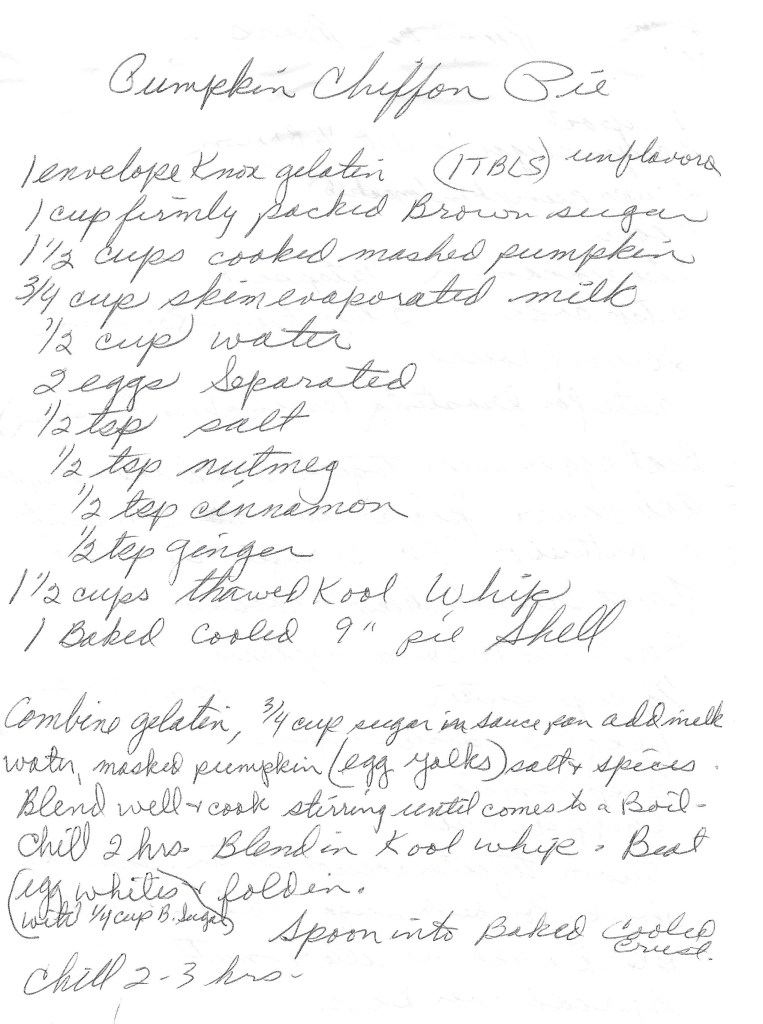 Pumpkin Chiffon Pie
1 envelope Knox gelatin (1 TBLS) unflavora
1 cup firmly packed Brown sugar
1 1/2 cups cooked mashed pumpkin
3/4 cup skim evaporated milk
1/2 cup water
2 eggs Separated
1/2 tsp salt
1/2 tsp nutmeg
1/2 tsp cinnamon
1/2 tsp ginger
1 1/2 cups thawed Kool Whip
1 Baked Cooled 9" pie Shell
Combine gelatin, 3/4 cup sugar in sauce pan add milk
water, mashed pumpkin (egg yolks) salt & spices.
Blend well & cook stirring until comes to a Boil -
Chill 2 hrs. Blend in Kool whip. Beat
(egg whites & fold in.
with 1/4 cup B. Sugar)
Spoon into Baked Cooled
Crust.
Chill 2-3 hrs-